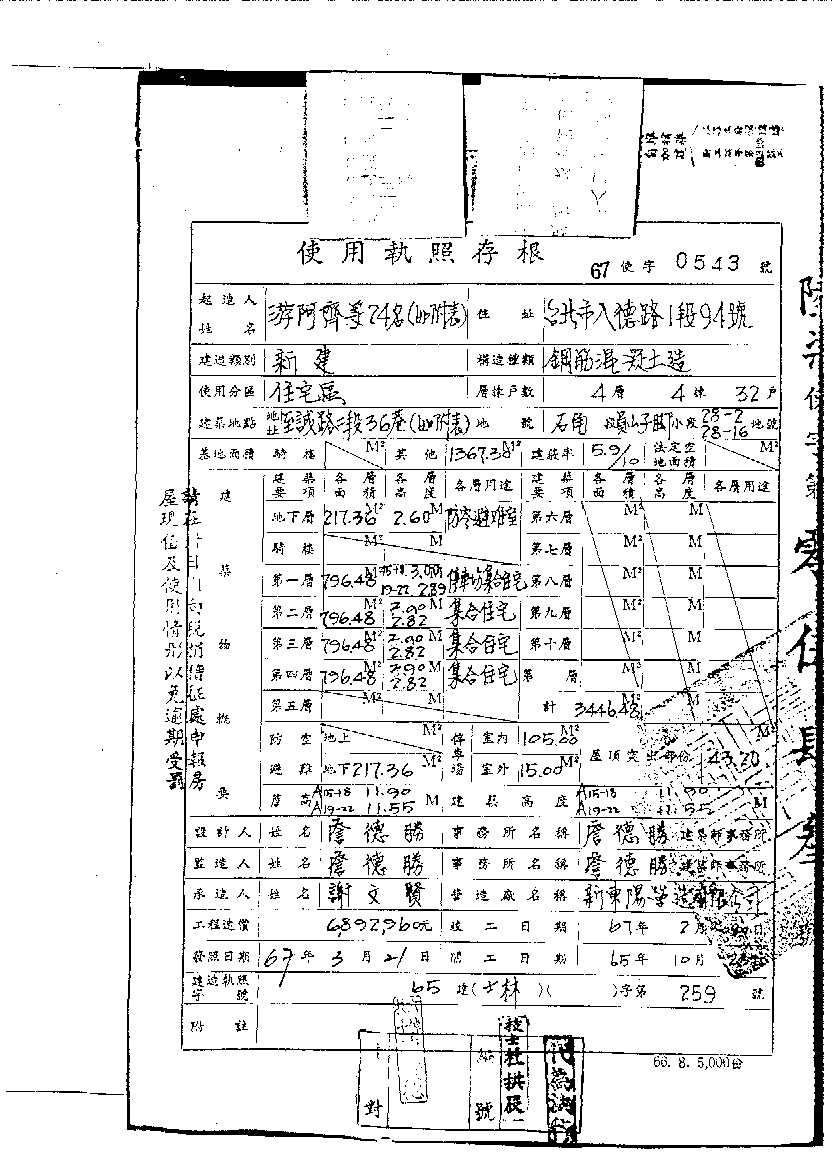 使用執照存根
67 使字 0543 號
起造人姓名 游阿齊等24名(如附表) 住址 台北市八德路1段94號
建造類別 新建 構造種類 鋼筋混凝土造
使用分區 住宅區 層棟戶數 4層 4棟 32戶
建築地點 地址 至誠路二段36巷(如附表) 地號 石角 段 員山子腳 小段 28-2 28-16 地號
基地面積 騎樓 M² 其他 1367.38 M² 建蔽率 5.9/10 法定空地面積 M²
建築要項 各層面積 各層高度 各層用途 建築要項 各層面積 各層高度 各層用途
地下層 217.36 M² 2.60 M 防空避難室 第六層 M² M
騎樓 M² M 第七層 M² M
第一層 796.48 M² 19-22 2.89 停車場集合住宅 第八層 M² M
第二層 796.48 M² 2.90 2.82 M 集合住宅 第九層 M² M
第三層 796.48 M² 2.90 2.82 M 集合住宅 第十層 M² M
第四層 796.48 M² 2.90 2.82 M 集合住宅 第 層 M² M
第五層 M² M 計 3446.48 M² M
防空避難 地上 M² 停車場 室內 105.00 M² 屋頂突出部份 43.20 M²
地下 217.36 M² 室外 15.00 M²
層高 A15-18 11.90 A19-22 11.55 M 建築高度 A15-18 11.90 A19-22 11.55 M
設計人 姓名 詹德勝 事務所名稱 詹德勝建築師事務所
監造人 姓名 詹德勝 事務所名稱 詹德勝建築師事務所
承造人 姓名 謝文賢 營造廠名稱 新東陽營造有限公司
工程造價 6892960元 竣工日期 67年 2月 日
發照日期 67年 3月 21日 開工日期 65年 10月 日
建造執照字號 65 建(士林)( )字第 259 號
附註
66. 8. 5,000份
建築物概要
屋現值及使用情形以免逾期受罰
處申報房
對
號
技士杜拱辰
代為決行